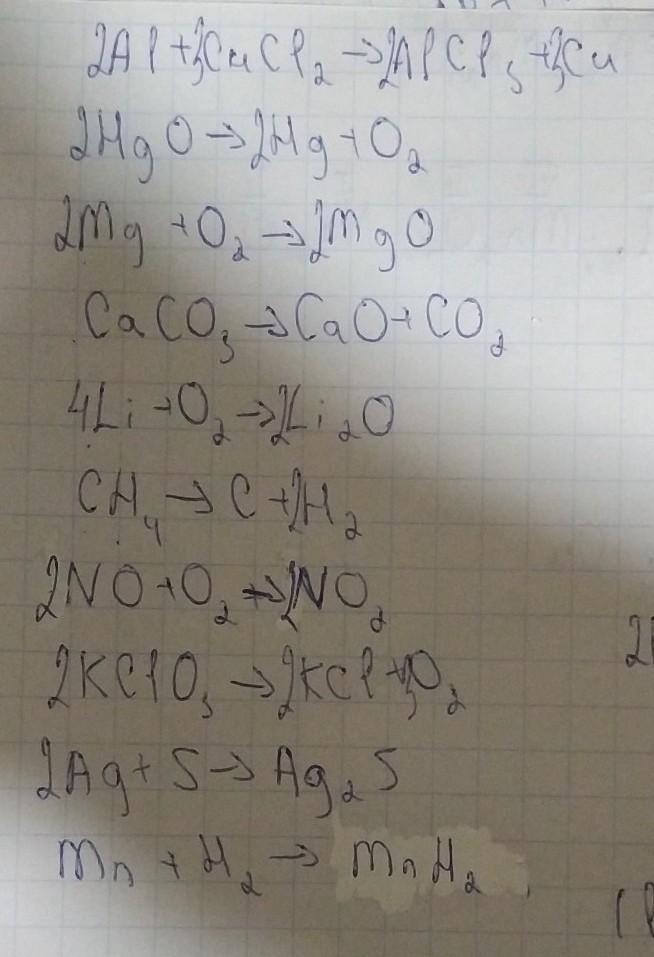 2Al+3CuCl₂→2AlCl₃+3Cu
2HgO→2Hg+O₂
2Mg+O₂→2MgO
CaCO₃→CaO+CO₂
4Li+O₂→2Li₂O
CH₄→C+2H₂
2NO+O₂→2NO₂
2KClO₃→2KCl+3O₂
2Ag+S→Ag₂S
Mn+H₂→MnH₂